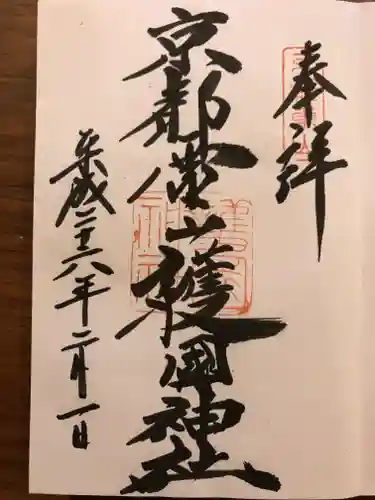 奉拝
京都霊山護國神社
平成二十八年二月一日